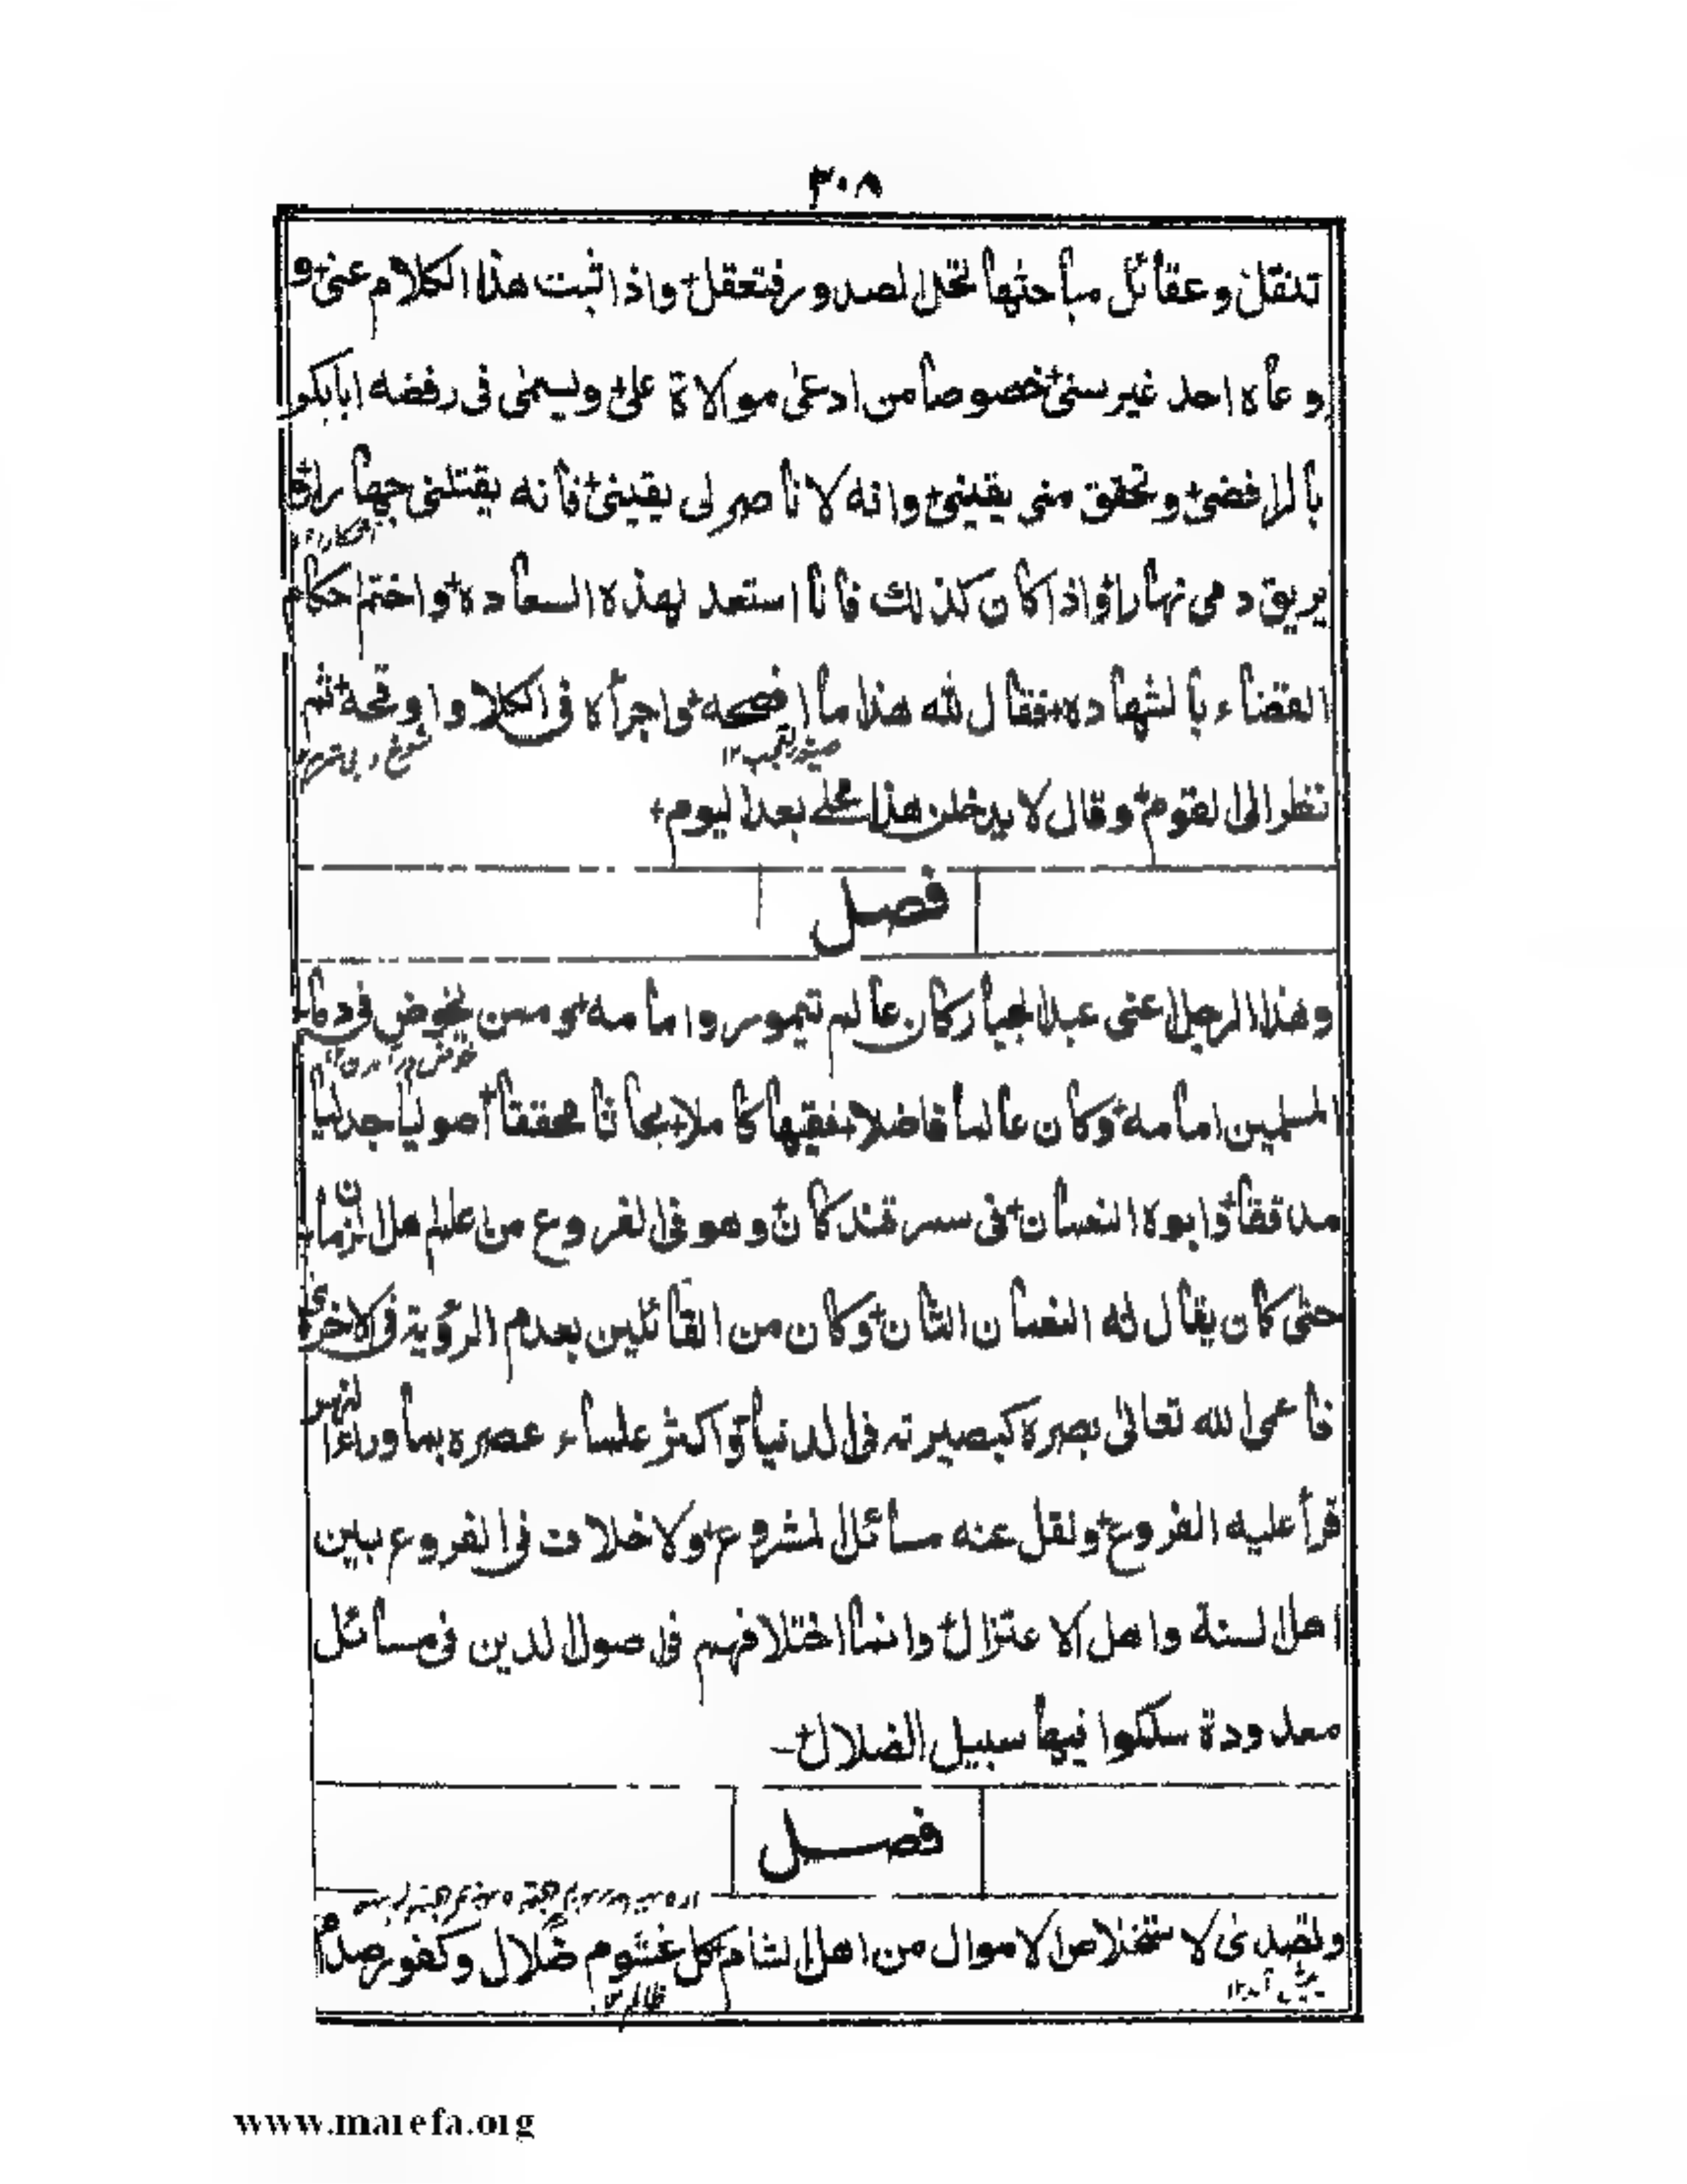 ٣٠٨
تنقل وعقائل مباحثها تحل الصدور فتعقل+ واذا ثبت هذا الكلام عنى+و
وعاه احد غير سنى+خصوصا من ادعى موالاة على+ ويسمى فى رفضه ابابكر
بالرافضى+ وتحقق منى يقينى+ وانه لا ناصر لى يقينى+ فانه يقتلنى جهارا+و
يريق دمى نهارا+واذا كان كذلك فانا استعد لهذه السعاده+واختم احكام
القضاء بالشهاده+فقال لله هذا ما افصحه+واجرأه فى الكلام واوقحه+ثم
نظر الى القوم+ وقال لا يدخلن هذا على بعد اليوم+
فصل
وهذا الرجل اعنى عبد الجبار كان عالم تيمور وامامه+وممن يخوض فى دماء
المسلمين امامه+وكان عالما فاضلا+فقيها كاملا+بحاثا محققا+اصوليا جدليا
مدققا+وابوه النعمان+فى سمرقند كان+وهو فى الفروع من اعلم اهل الزمان
حتى كان يقال له النعمان الثان+وكان من القائلين بعدم الرؤية فى الاخرى
فاعمى الله تعالى بصره كبصيرته فى الدنيا+واكثر علماء عصره بما وراء النهر
قرأ عليه الفروع+ونقل عنه مسائل المشروع+ولا خلاف فى الفروع بين
اهل السنة واهل الاعتزال+ وانما اختلافهم فى اصول الدين فى مسائل
معدودة سلكوا فيها سبيل الضلال+
فصل
وتصدى لاستخلاص الاموال من اهل الشام كل غشوم ضلال وكفور صدام
www.marefa.org